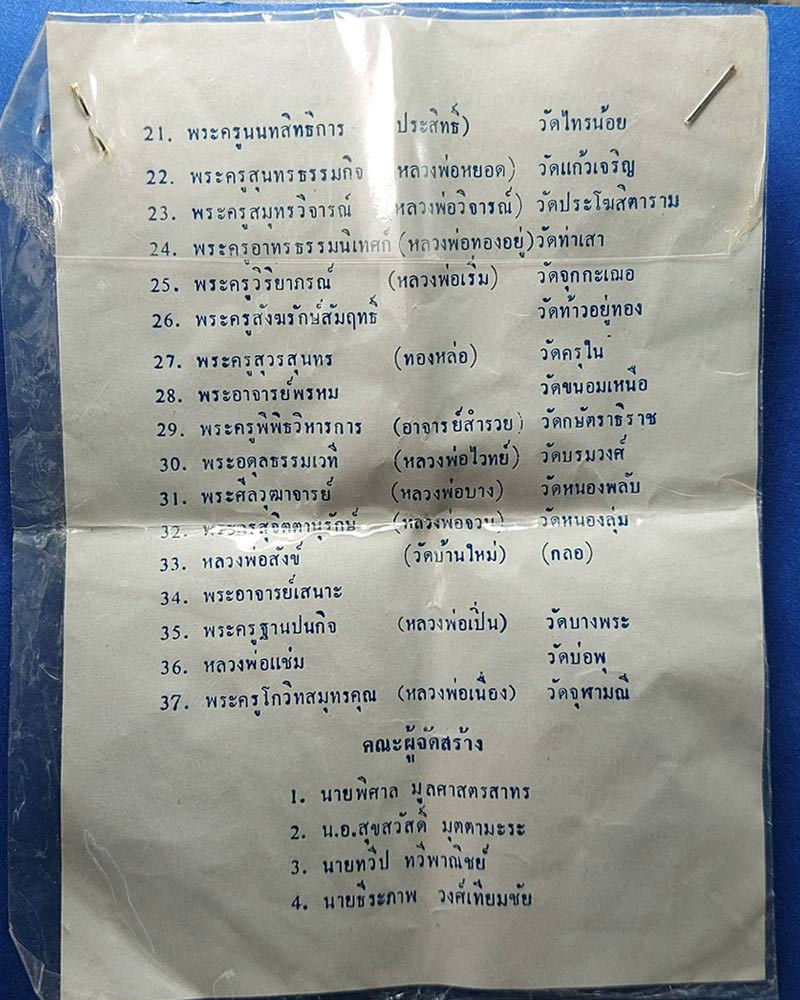 21. พระครูนนทสิทธิการ (ประสิทธิ์) วัดไทรน้อย
22. พระครูสุนทรธรรมกิจ (หลวงพ่อหยอด) วัดแก้วเจริญ
23. พระครูสมุทรวิจารณ์ (หลวงพ่อวิจารณ์) วัดประโฆสิตาราม
24. พระครูอาทรธรรมนิเทศก์ (หลวงพ่อทองอยู่) วัดท่าเสา
25. พระครูวิริยาภรณ์ (หลวงพ่อเริ่ม) วัดจุกกะเฌอ
26. พระครูสังฆรักษ์สัมฤทธิ์ วัดท้าวอยู่ทอง
27. พระครูสุวรสุนทร (ทองหล่อ) วัดครุใน
28. พระอาจารย์พรหม วัดขนอมเหนือ
29. พระครูพิพิธวิหารการ (อาจารย์สำรวย) วัดกษัตราธิราช
30. พระอดุลธรรมเวที (หลวงพ่อไวทย์) วัดบรมวงศ์
31. พระศีลวุฒาจารย์ (หลวงพ่อบาง) วัดหนองพลับ
32. พระครูสุจิตตานุรักษ์ (หลวงพ่อจวน) วัดหนองลุ่ม
33. หลวงพ่อสังข์ (วัดบ้านใหม่) (กลอ)
34. พระอาจารย์เสนาะ
35. พระครูฐานปนกิจ (หลวงพ่อเปิ่น) วัดบางพระ
36. หลวงพ่อแช่ม วัดบ่อพุ
37. พระครูโกวิทสมุทรคุณ (หลวงพ่อเนื่อง) วัดจุฬามณี
คณะผู้จัดสร้าง
1. นายพิศาล มูลศาสตรสาทร
2. น.อ.สุขสวัสดิ์ มุตตามะระ
3. นายทวีป ทวีพาณิชย์
4. นายธีระภาพ วงศ์เทียมชัย